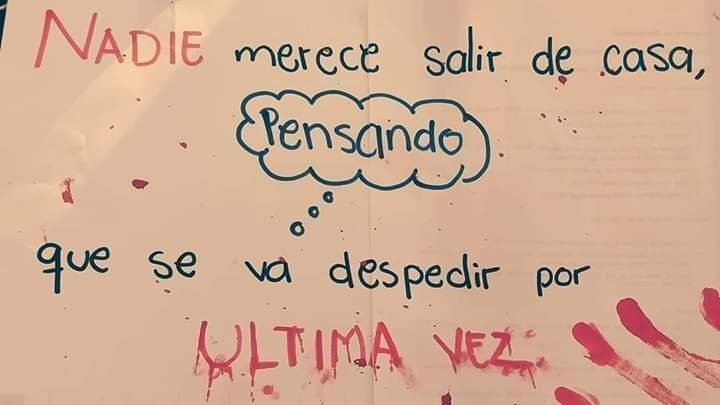 NADIE merece salir de casa,
Pensando
que se va despedir por
ULTIMA VEZ.